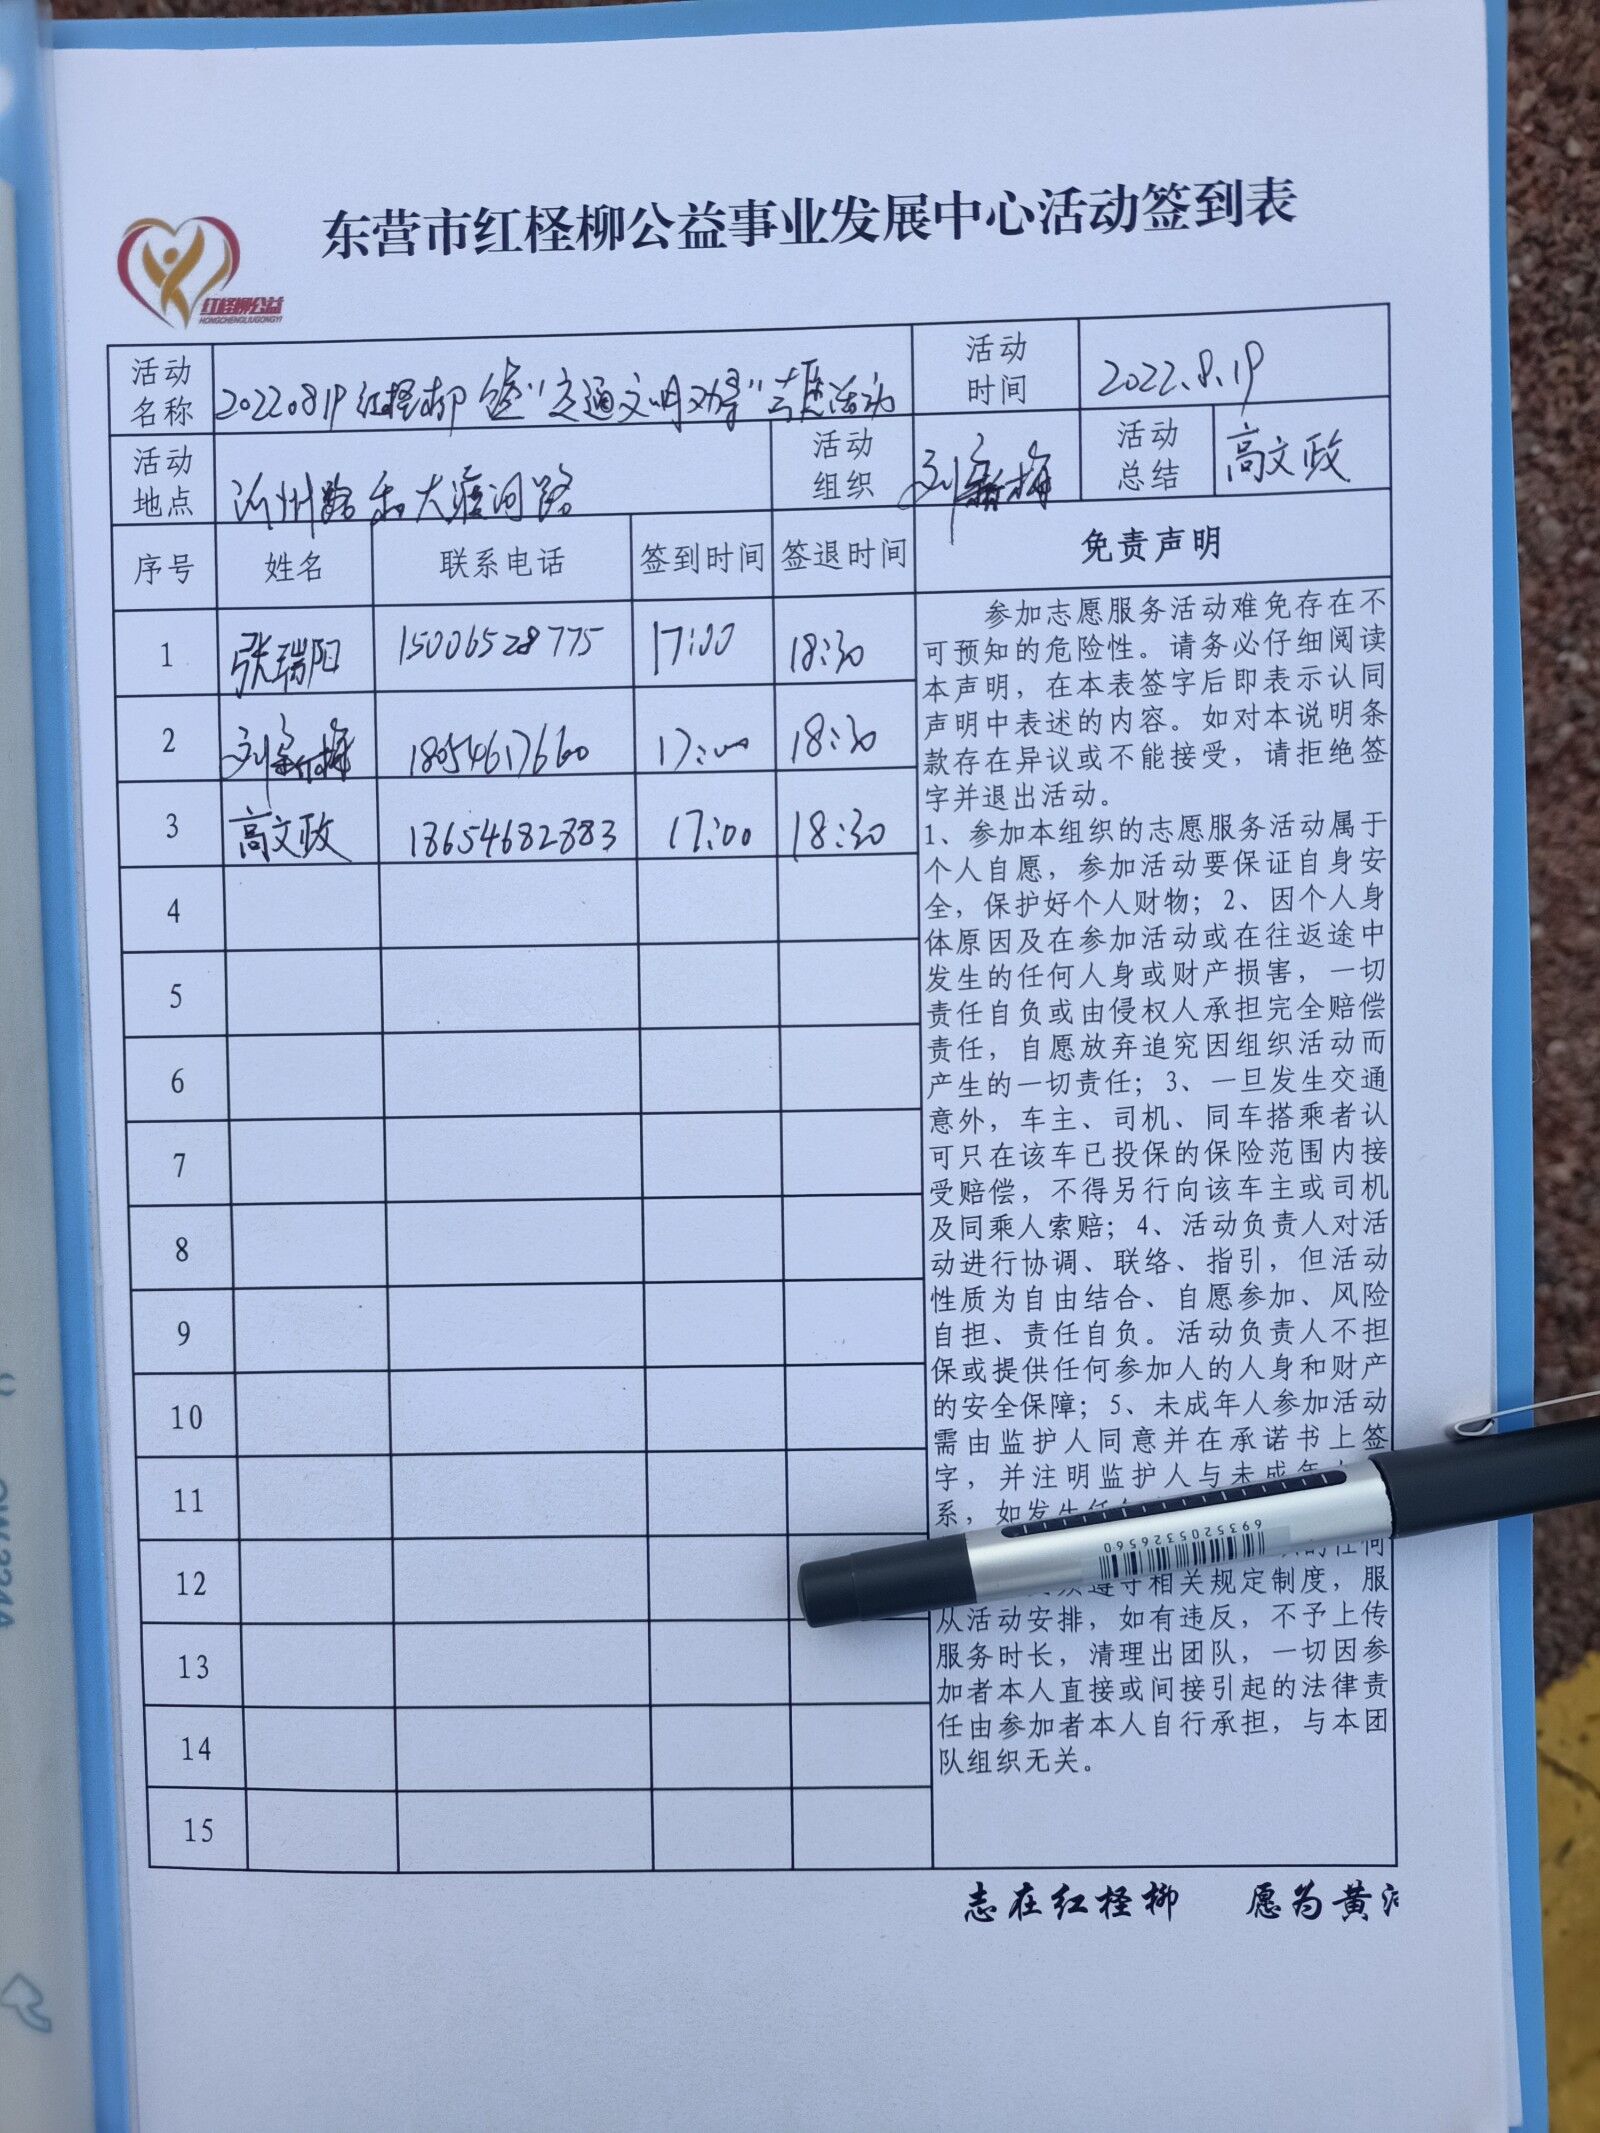 东营市红柽柳公益事业发展中心活动签到表
红柽柳公益
HONGCHENGLIUGONGYI
活动名称 20220819红柽柳 "交通文明劝导"志愿活动 活动时间 2022.8.19
活动地点 沂州路和大渡河路 活动组织 刘新梅 活动总结 高文政
序号 姓名 联系电话 签到时间 签退时间 免责声明
1 张瑞阳 15006528775 17:00 18:30
2 刘新梅 18054617660 17:00 18:30
3 高文政 18654682883 17:00 18:30
4
5
6
7
8
9
10
11
12
13
14
15
参加志愿服务活动难免存在不
可预知的危险性。请务必仔细阅读
本声明，在本表签字后即表示认同
声明中表述的内容。如对本说明条
款存在异议或不能接受，请拒绝签
字并退出活动。
1、参加本组织的志愿服务活动属于
个人自愿，参加活动要保证自身安
全，保护好个人财物；2、因个人身
体原因及在参加活动或在往返途中
发生的任何人身或财产损害，一切
责任自负或由侵权人承担完全赔偿
责任，自愿放弃追究因组织活动而
产生的一切责任；3、一旦发生交通
意外，车主、司机、同车搭乘者认
可只在该车已投保的保险范围内接
受赔偿，不得另行向该车主或司机
及同乘人索赔；4、活动负责人对活
动进行协调、联络、指引，但活动
性质为自由结合、自愿参加、风险
自担、责任自负。活动负责人不担
保或提供任何参加人的人身和财产
的安全保障；5、未成年人参加活动
需由监护人同意并在承诺书上签
字，并注明监护人与未成年
系，如发生任
的任何
遵守相关规定制度，服
从活动安排，如有违反，不予上传
服务时长，清理出团队，一切因参
加者本人直接或间接引起的法律责
任由参加者本人自行承担，与本团
队组织无关。
6935205326560
志在红柽柳 愿为黄